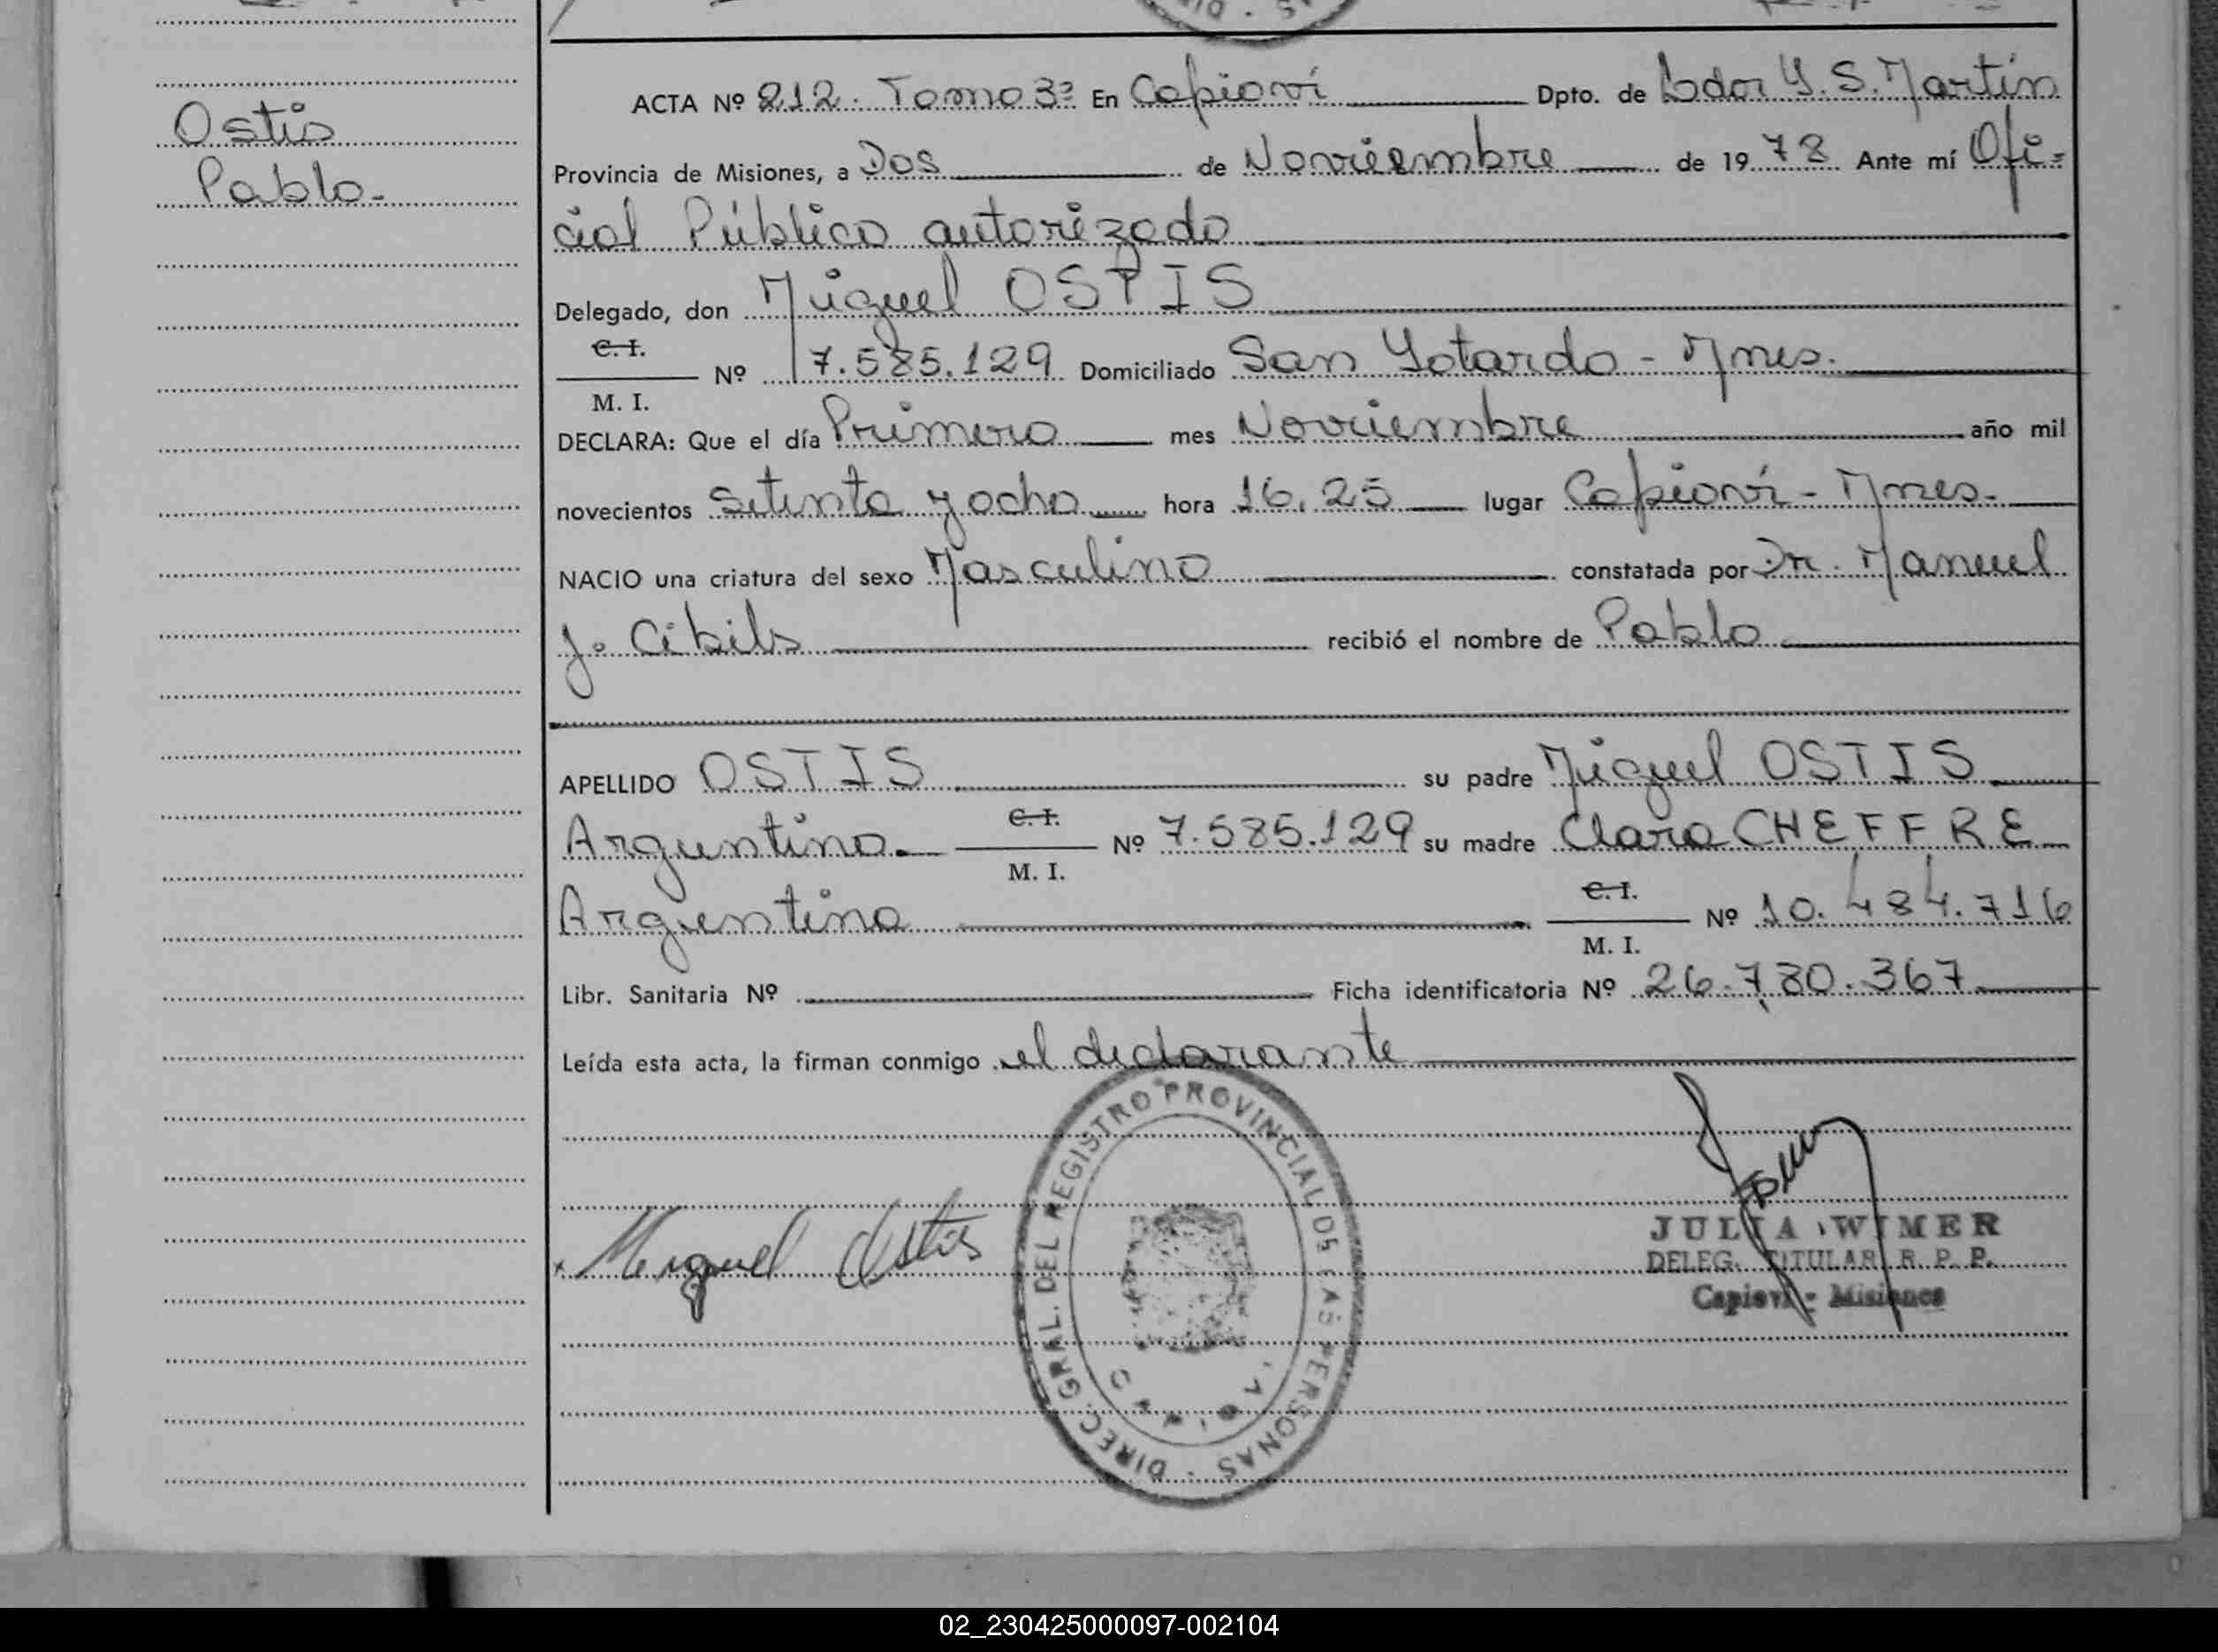 Ostis
Pablo.-
ACTA Nº 212. Tomo 3º En Capioví Dpto. de Ldor G. S. Martín
Provincia de Misiones, a Dos de Noviembre de 1978 Ante mí Ofi=
cial Público autorizado
Delegado, don Miguel OSTIS
C. I.
Nº 7.585.129 Domiciliado San Gotardo - Mnes.
M. I.
DECLARA: Que el día Primero mes Noviembre año mil
novecientos setenta y ocho hora 16,25 lugar Capioví - Mnes.
NACIO una criatura del sexo Masculino constatada por Dr. Manuel
J. Cibils recibió el nombre de Pablo
APELLIDO OSTIS su padre Miguel OSTIS
Argentino. C. I. Nº 7.585.129 su madre Clara CHEFFRE
M. I.
Argentina C. I. Nº 10.484.716
M. I.
Libr. Sanitaria Nº Ficha identificatoria Nº 26.780.367
Leída esta acta, la firman conmigo el declarante
Miguel Ostis
DIREC. GRAL. DEL REGISTRO PROVINCIAL DE LAS PERSONAS
JULIA WIMER
DELEG. TITULAR R. P. P.
Capioví - Misiones
02_230425000097-002104